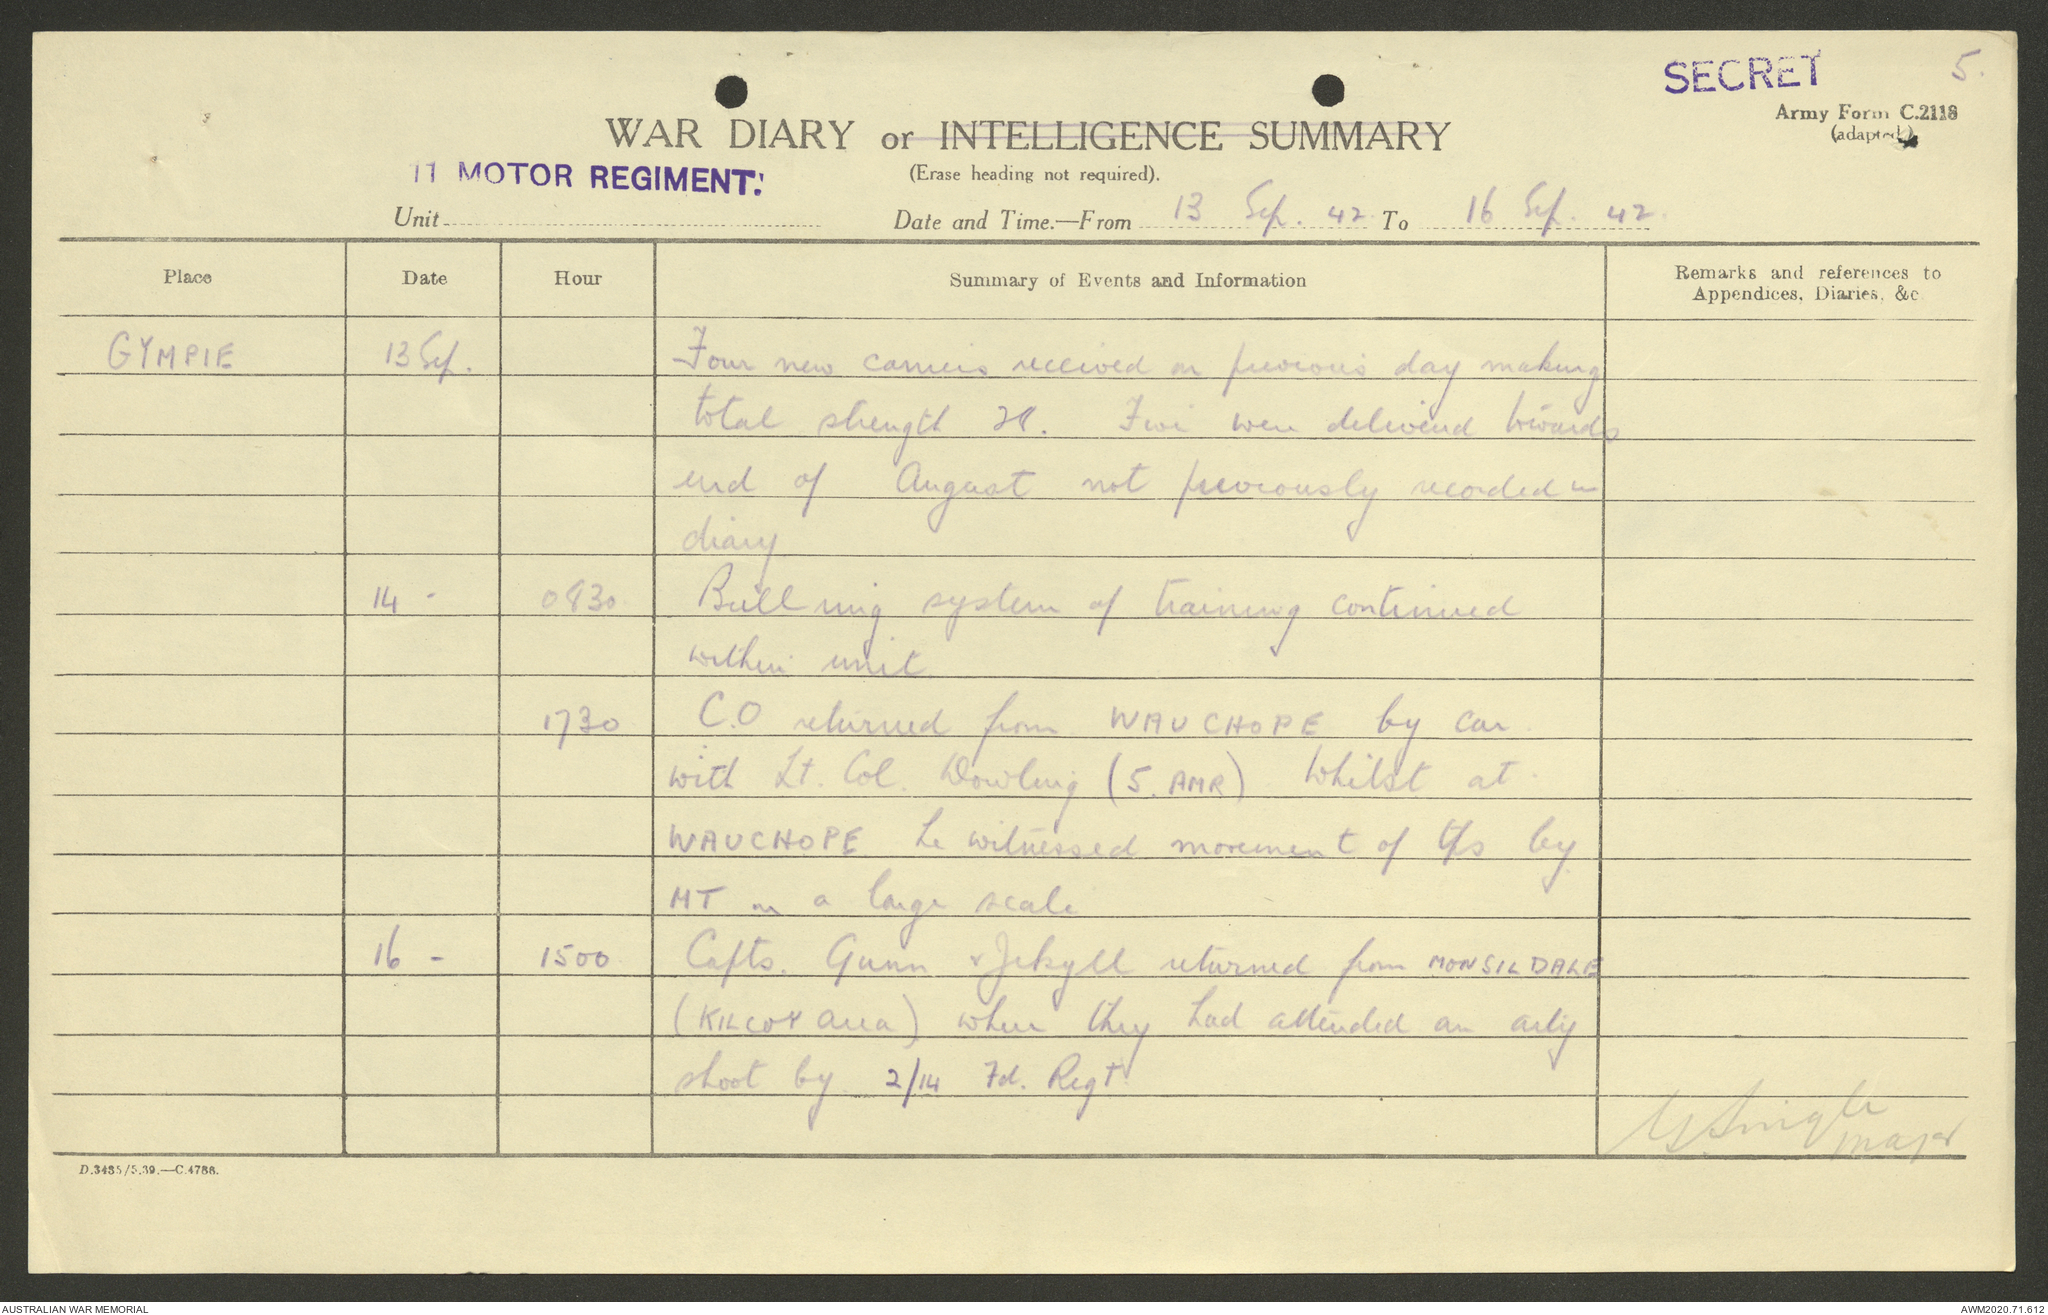 SECRET
5.
Army Form C.2118
(adapted)
WAR DIARY or INTELLIGENCE SUMMARY
(Erase heading not required).
11 MOTOR REGIMENT.
Unit
Date and Time.—From 13 Sep. 42. To 16 Sep. 42.
Place Date Hour Summary of Events and Information Remarks and references to
Appendices, Diaries, &c
GYMPIE 13 Sep. Four new carriers received on previous day making
total strength 28. were delivered towards
end of August not previously recorded in
diary
14 - 0830 Bull ring system of training continued
within unit.
1730 C.O returned from WAUCHOPE by car
with Lt. Col. Dowling (5. AMR) Whilst at
WAUCHOPE he witnessed movement of tps by
MT on a large scale
16 - 1500 Capts. Gunn & Jekyll returned from MONSILDALE
(KILCOY area) where they had attended an arty
shoot by 2/14 Fd. Regt.
Major
D.3485/5.39.—C.4788.
AUSTRALIAN WAR MEMORIAL
AWM2020.71.612